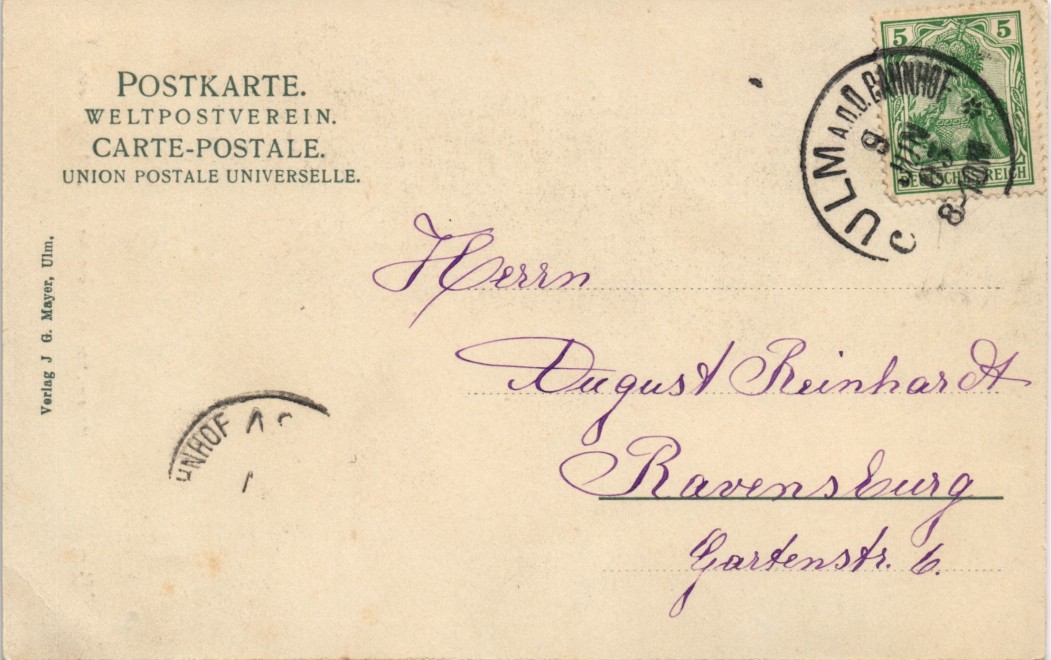 POSTKARTE.
WELTPOSTVEREIN.
CARTE-POSTALE.
UNION POSTALE UNIVERSELLE.
5 5
DEUTSCHES REICH
ULM A.D.D. BAHNHOF *
8 JUN
05
8-10
Herrn
August Reinhardt
Ravensburg
Gartenstr. 6.
Verlag J G. Mayer, Ulm.
HNHOF